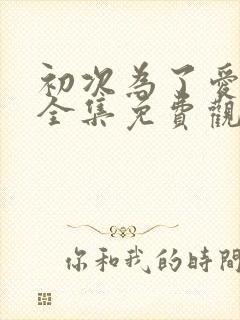 初次為了愛
全集免費觀
你和我的時間